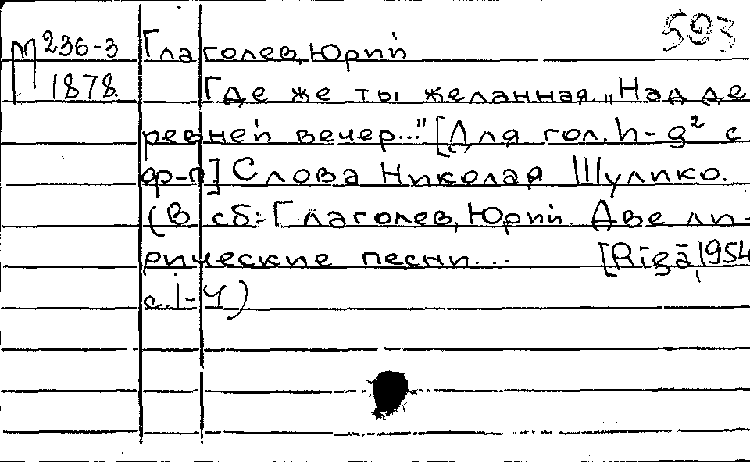 593
М 236-3 Глаголев, Юрий
1878 Где же ты желанная. „Над де
ревней вечер..." [Для гол. h-g² с
ф-п] Слова Николая Шулико.
(В сб: Глаголев, Юрий. Две ли-
рические песни... [Rīgā, 1954
с. 1-4)